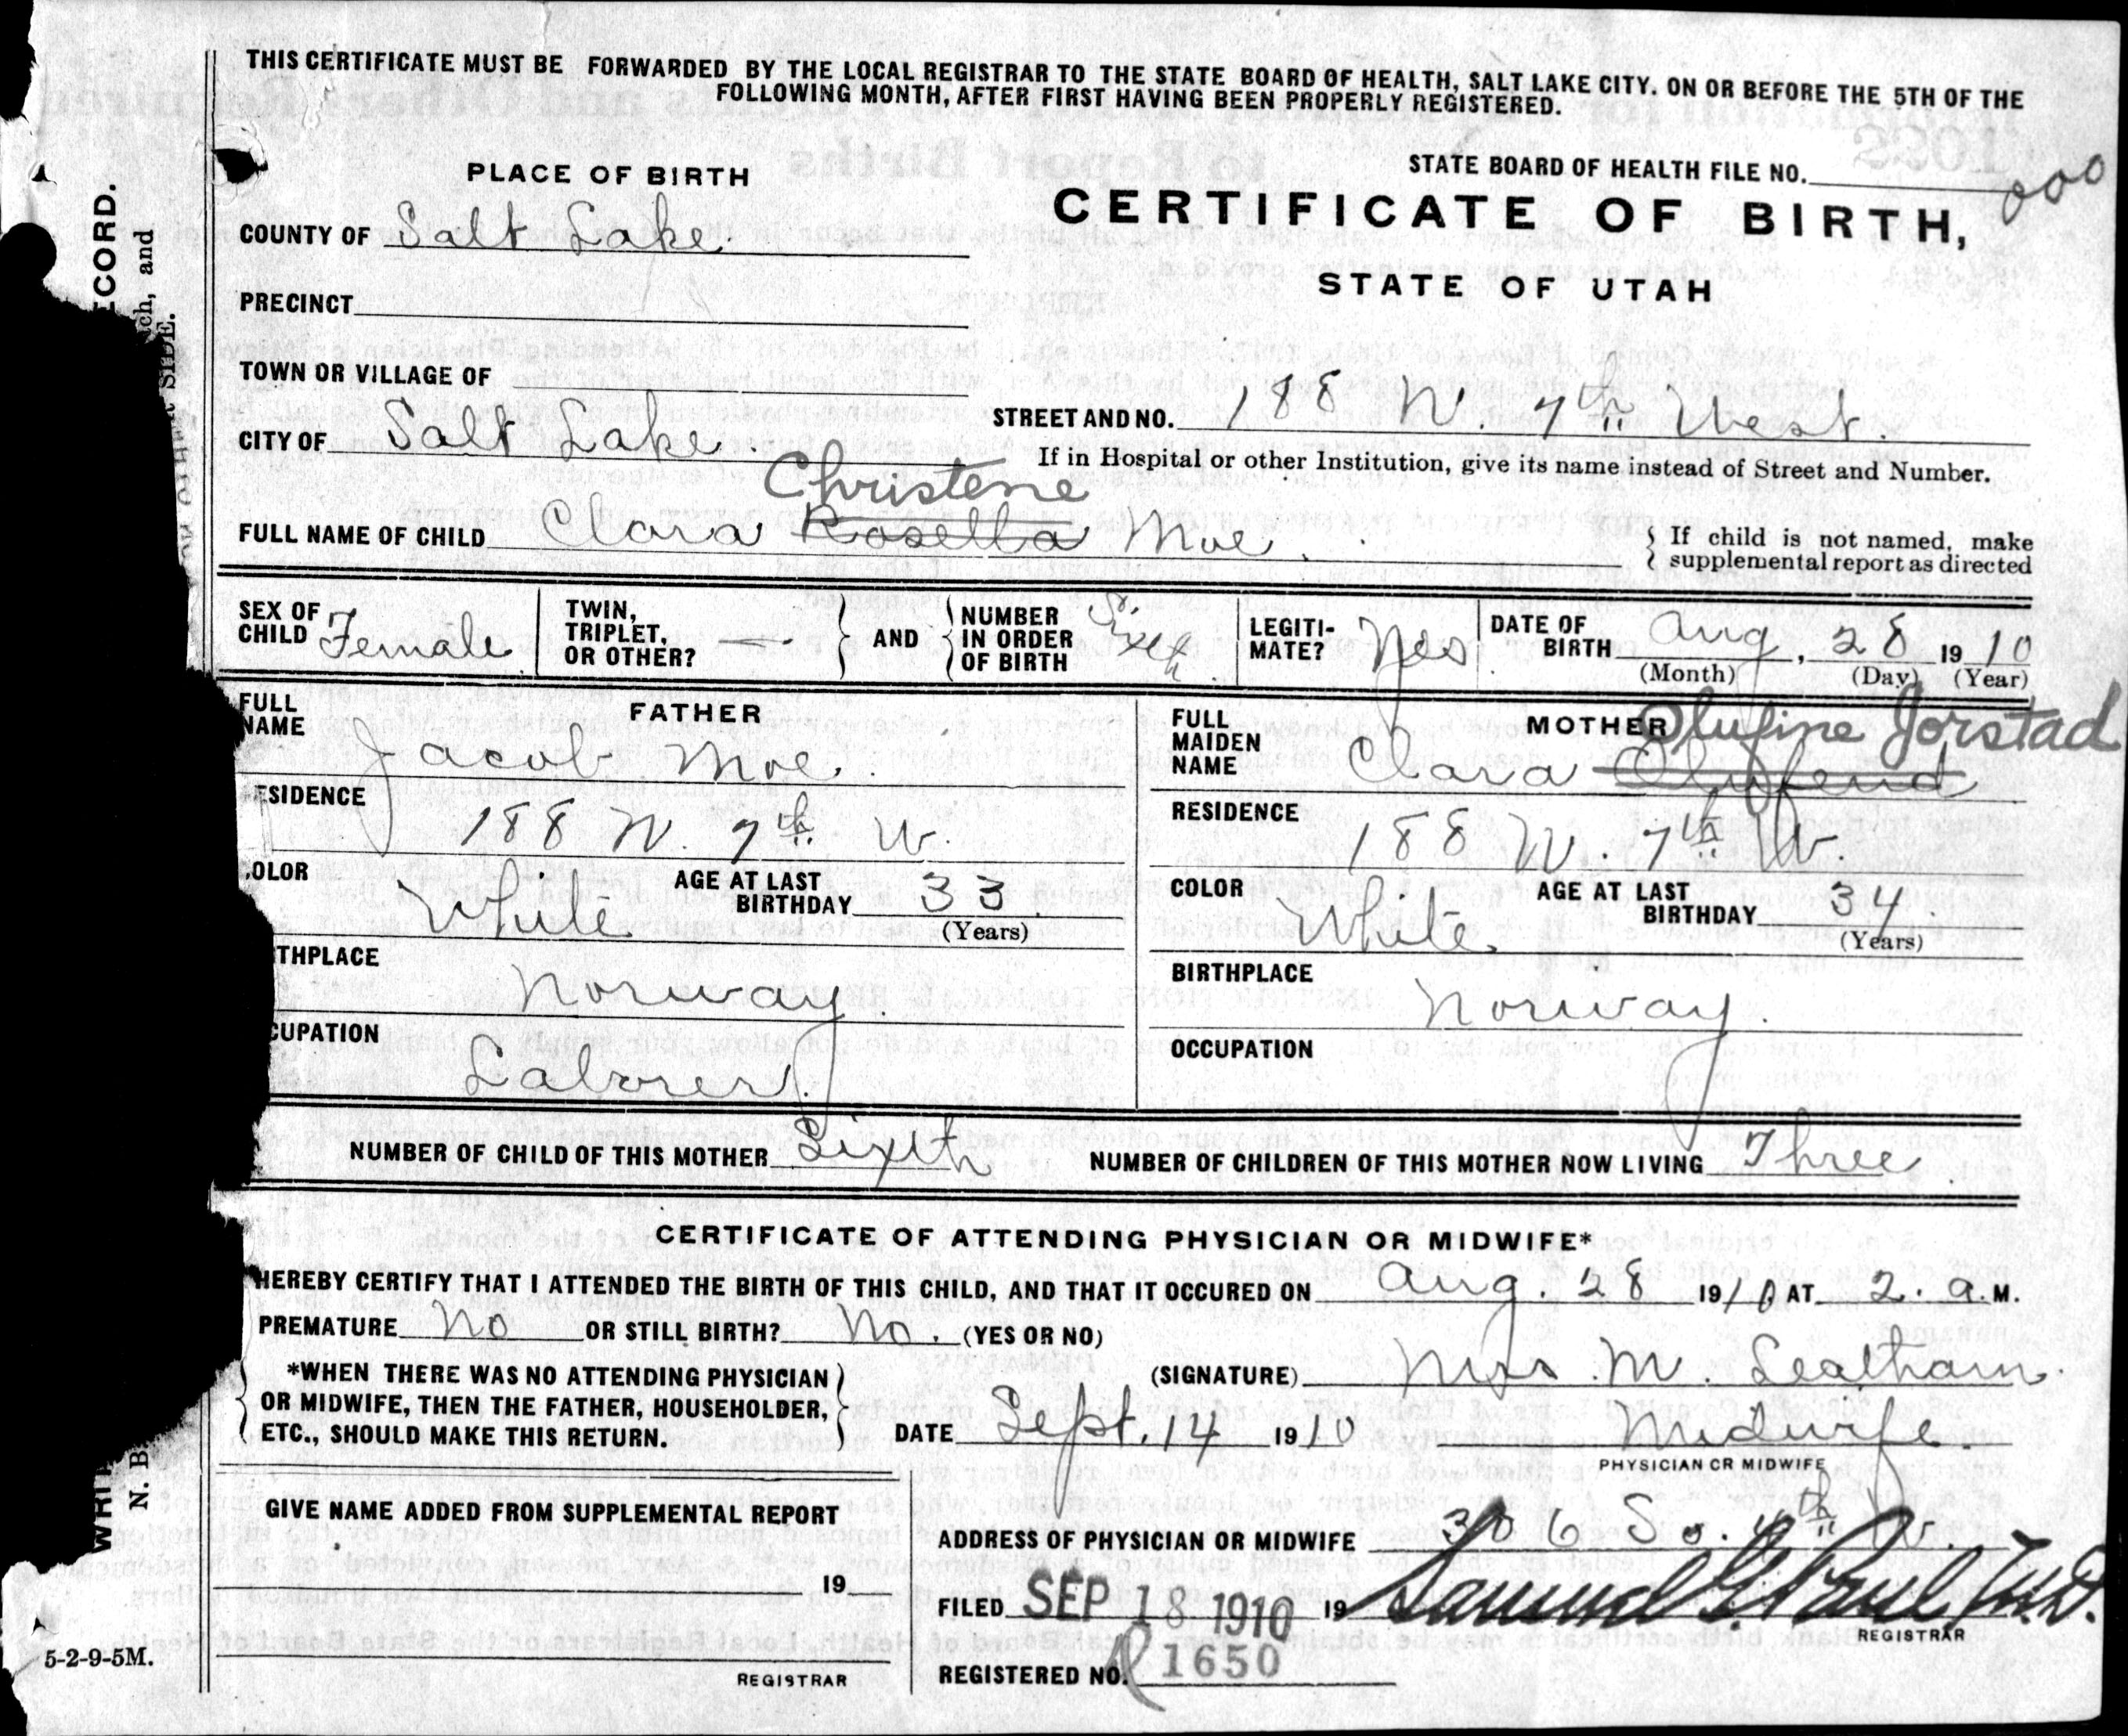 THIS CERTIFICATE MUST BE FORWARDED BY THE LOCAL REGISTRAR TO THE STATE BOARD OF HEALTH, SALT LAKE CITY. ON OR BEFORE THE 5TH OF THE
FOLLOWING MONTH, AFTER FIRST HAVING BEEN PROPERLY REGISTERED.
PLACE OF BIRTH
STATE BOARD OF HEALTH FILE NO.
CERTIFICATE OF BIRTH,
STATE OF UTAH
COUNTY OF Salt Lake.
PRECINCT
TOWN OR VILLAGE OF
CITY OF Salt Lake.
STREET AND NO. 188 N. 7th West.
If in Hospital or other Institution, give its name instead of Street and Number.
Christene
FULL NAME OF CHILD Clara Rosella Moe.
If child is not named, make
supplemental report as directed
SEX OF CHILD Female
TWIN, TRIPLET, OR OTHER? —
AND
NUMBER IN ORDER OF BIRTH Sixth
LEGITI-MATE? Yes
DATE OF BIRTH Aug, 28 1910
(Month) (Day) (Year)
FATHER
FULL NAME Jacob Moe.
ESIDENCE 188 N. 7th W.
OLOR White
AGE AT LAST BIRTHDAY 33
(Years)
THPLACE Norway
CUPATION Laborer
MOTHER Olufine Jorstad
FULL MAIDEN NAME Clara
RESIDENCE 188 N. 7th W.
COLOR White.
AGE AT LAST BIRTHDAY 34.
(Years)
BIRTHPLACE Norway.
OCCUPATION
NUMBER OF CHILD OF THIS MOTHER Sixth
NUMBER OF CHILDREN OF THIS MOTHER NOW LIVING Three
CERTIFICATE OF ATTENDING PHYSICIAN OR MIDWIFE*
HEREBY CERTIFY THAT I ATTENDED THE BIRTH OF THIS CHILD, AND THAT IT OCCURED ON Aug. 28 1910 AT 2. a.M.
PREMATURE No OR STILL BIRTH? No. (YES OR NO)
*WHEN THERE WAS NO ATTENDING PHYSICIAN
OR MIDWIFE, THEN THE FATHER, HOUSEHOLDER,
ETC., SHOULD MAKE THIS RETURN.
(SIGNATURE) Mrs. M. Leatham.
DATE Sept. 14 1910
Midwife.
PHYSICIAN OR MIDWIFE
GIVE NAME ADDED FROM SUPPLEMENTAL REPORT
19
REGISTRAR
ADDRESS OF PHYSICIAN OR MIDWIFE 306 So. 4th W.
FILED SEP 18 1910 19 Samuel G. Paul M.D.
REGISTRAR
REGISTERED NO. 1650
5-2-9-5M.
N. B.